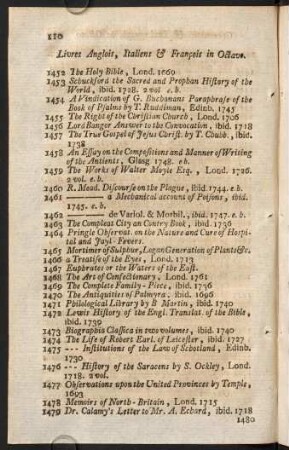 110
Livres Anglois, Italiens & François in Octavo.
1452 The Holy Bible, Lond. 1660
1453 Schuckford the Sacred and Prophan History of the
World, ibid. 1728. 2 vol e. b.
1454 A Vindication of G. Buchanans Paraphrase of the
Book of Psalms by T. Ruddiman, Edinb. 1745
1455 The Right of the Christian Church, Lond. 1706
1456 Lord Bangor Answer to the Convocation, ibid. 1718
1457 The True Gospel of Jesus Christ. by T. Chubb, ibid.
1738
1458 An Essay on the Compositions and Manner of Writing
of the Antients, Glasg 1748. e b.
1459 The Works of Walter Moyle Esq. Lond. 1726.
2 vol. e. b.
1460 R. Mead. Discourse on the Plague, ibid. 1744. e. b.
1461 ——— a Mechanical account of Poisons, ibid.
1745. e. b.
1462 ——— de Variol. & Morbil., ibid. 1747. e. b.
1463 The Compleat City an Contry Book, ibid. 1736
1464 Pringle Observat. on the Nature and Cure of Hospi-
tal and Jayl-Fevers.
1465 Mortimer of Sulphur, Logan Generation of Plants &c.
1466 a Treatise of the Eyes, Lond. 1713
1467 Euphrates or the Waters of the East.
1468 The Art of Confectionary, Lond. 1761
1469 The Complete Family-Piece, ibid. 1736
1470 The Antiquities of Palmyra, ibid. 1696
1471 Philological Library by B Martin, ibid. 1740
1472 Lewis History of the Engl. Translat. of the Bible,
ibid. 1739
1473 Biographia Classica in two volumes, ibid. 1740
1474 The Life of Robert Earl. of Leicester, ibid. 1727
1475 --- Institutions of the Law of Schotland, Edinb.
1730
1476 --- History of the Saracens by S. Ockley, Lond.
1718. 2 vol.
1477 Observations upon the United Provinces by Temple,
1693
1478 Memoirs of North-Britain, Lond. 1715
1479 Dr. Calamy's Letter to Mr. A Echard, ibid. 1718
1480